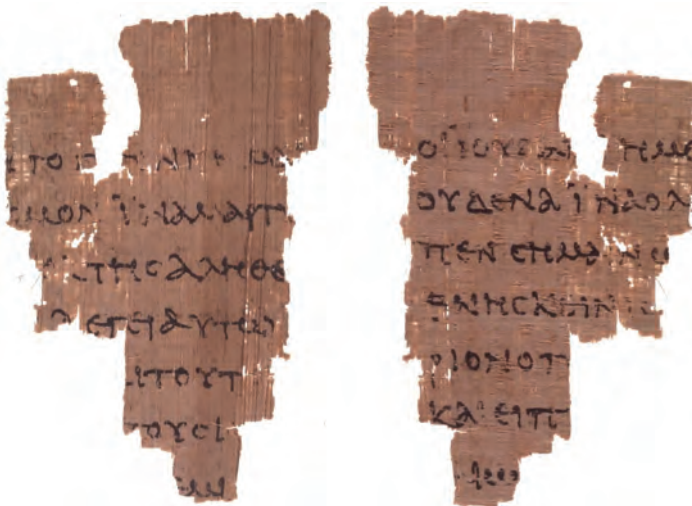 ΤΟΥΤΟ ΓΕΓΕΝΝΗΜΑΙ
ϹΜΟΝ ΪΝΑ ΜΑΡΤΥ
ΕΚ ΤΗϹ ΑΛΗΘΕ
ΛΕΓΕΙ ΑΥΤΩ
ΑΙ ΤΟΥΤ
ΤΟΥϹ Ι
ΟΙ ΙΟΥΔΑΙ ΗΜΕ
ΟΥΔΕΝΑ ΪΝΑ Ο Λ
ΠΕΝ ϹΗΜΑΙΝΩ
ΘΝΗϹΚΕΙΝ ΙϹ
ΡΙΟΝ Ο Π
ΚΑΙ ΕΙΠ